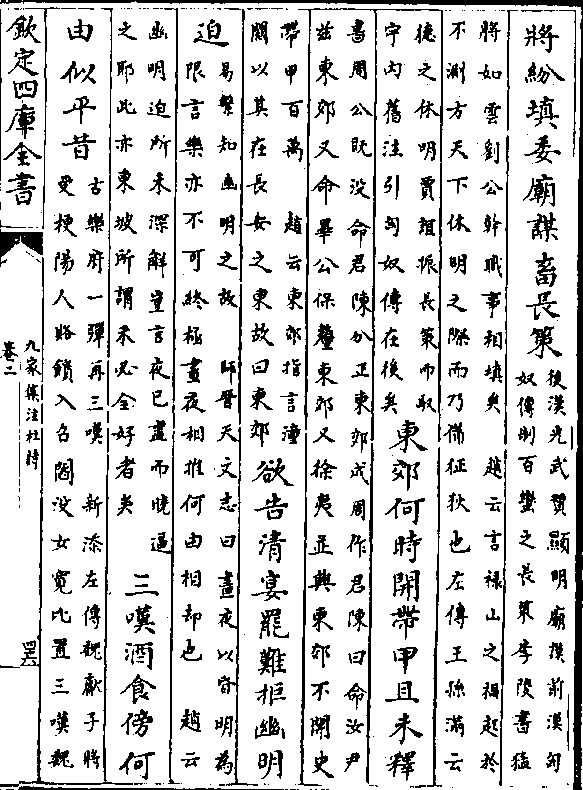 將紛填委廟謀畜長策後漢光武贊顯明廟謨前漢匈
奴傳制百蠻之長策李陵書猛
將如雲劉公幹職事相填矣　趙云言祿山之禍起於
不測方天下休明之際而乃備征狄也左傳王孫滿云
德之休明賈誼振長策而馭
宇內舊注引匈奴傳在後矣東郊何時開帶甲且未釋
書周公既沒命君陳分正東郊成周作君陳曰命汝尹
茲東郊又命畢公保釐東郊又徐夷並興東郊不開史
帶甲百萬　趙云東郊指言潼
關以其在長安之東故曰東郊欲告清宴罷難拒幽明
迫易繫知幽明之故　師晉天文志曰晝夜以容明為
限言樂亦不可終極晝夜相推何由相却也　趙云
幽明迫所未深解豈言夜已盡而曉逼
之耶此亦東坡所謂未必全好者矣三嘆酒食傍何
由似平昔古樂府一彈再三嘆　新添左傳魏獻子將
受梗陽人賂鎖入召閻沒女寬比置三嘆魏
欽定四庫全書
九家集注杜詩
卷二
四六